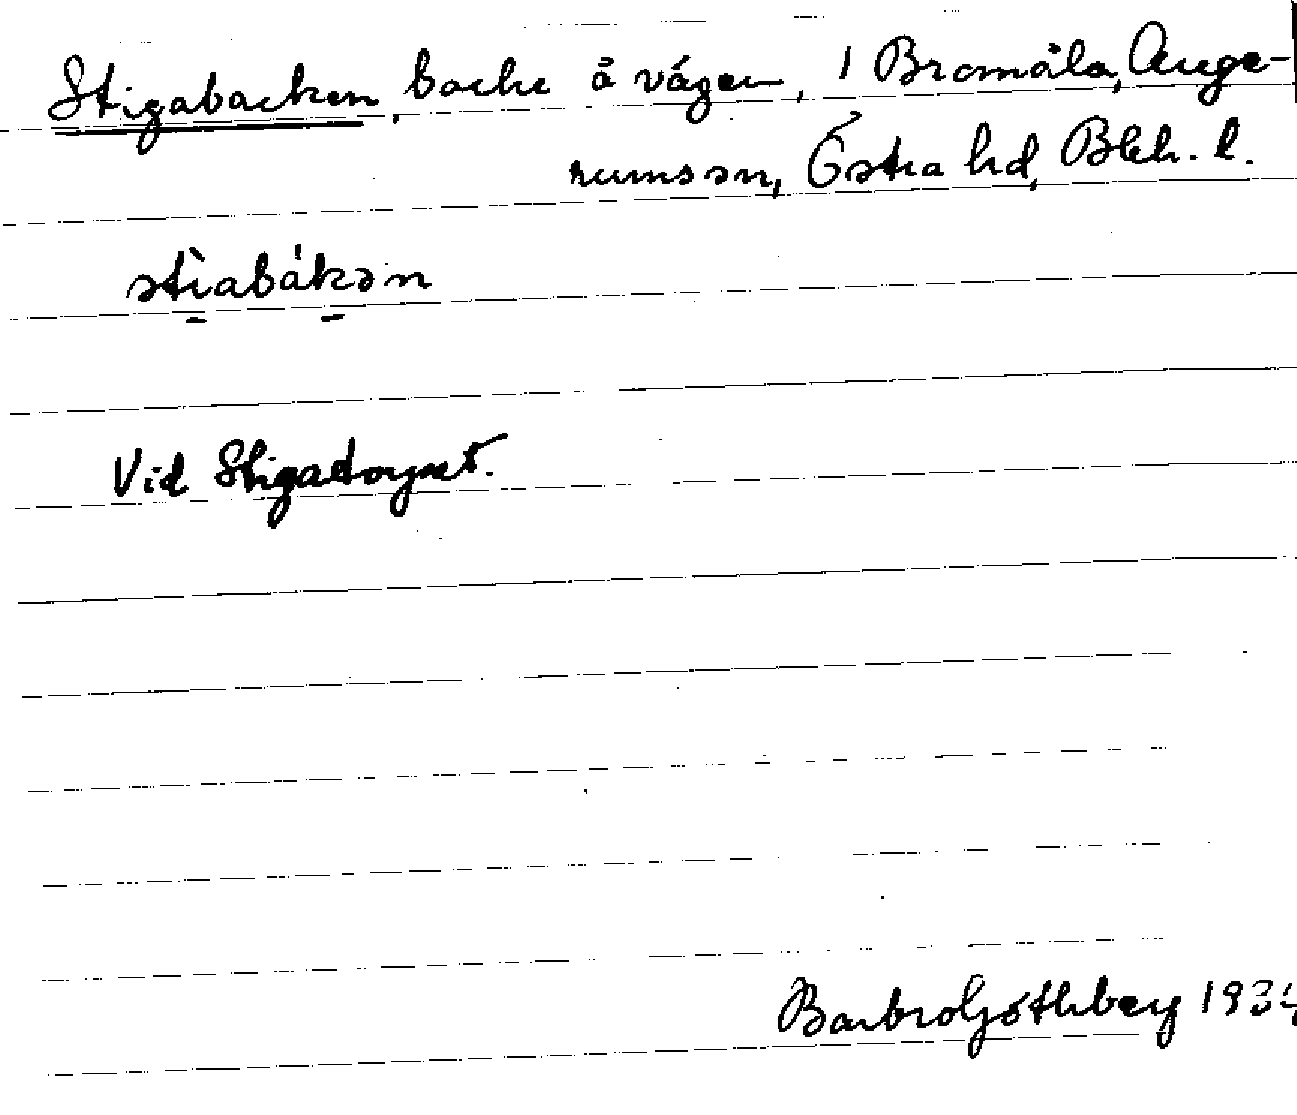 Stigabacken, backe å vägen, i Bromåla, Ange-
rums sn, Östra hd, Blek. l.
stìabákən
Vid Stigatorpet.
Barbro Göthberg